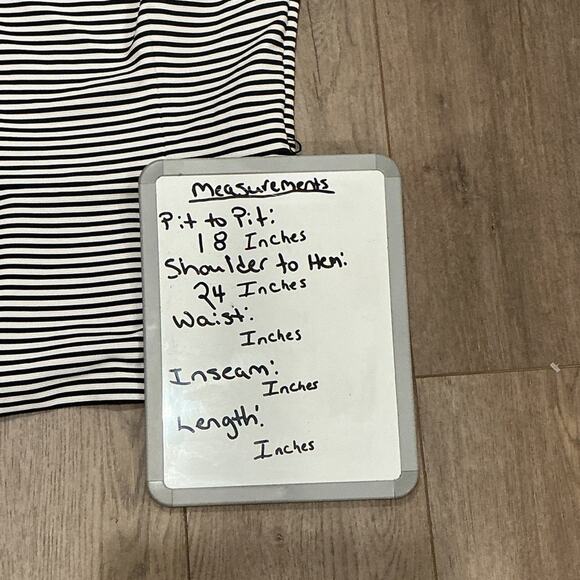 Measurements
Pit to Pit:
18 Inches
Shoulder to Hem:
24 Inches
Waist:
Inches
Inseam:
Inches
Length:
Inches